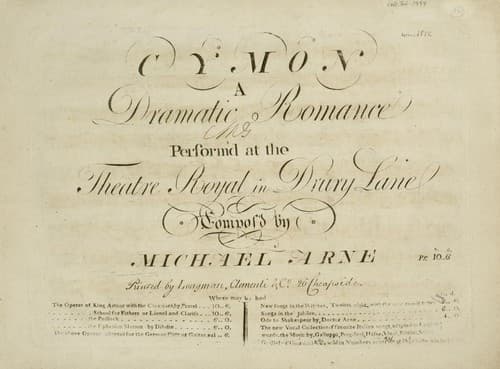 CYMON
A
Dramatic Romance
Perform'd at the
Theatre Royal in Drury Lane
Compos'd by
MICHAEL ARNE Pr. 10..6
Printed by Longman, Clementi & Co. 26 Cheapside.
Where may be had
The Operas of King Arthur with the by Purcel 10..6
School for Fathers or Lionel and Clarissa 10..6
the Padlock 6..0
the Ephesian Matron by Dibdin 6..0
The above Operas for the German Flute or Guitar
New Songs in the
Songs in the Jubilee
Ode to Shakespear by Doctor Arne
The new Vocal Collection of favorite Italian songs, adapted
words, the Music by Galuppi,